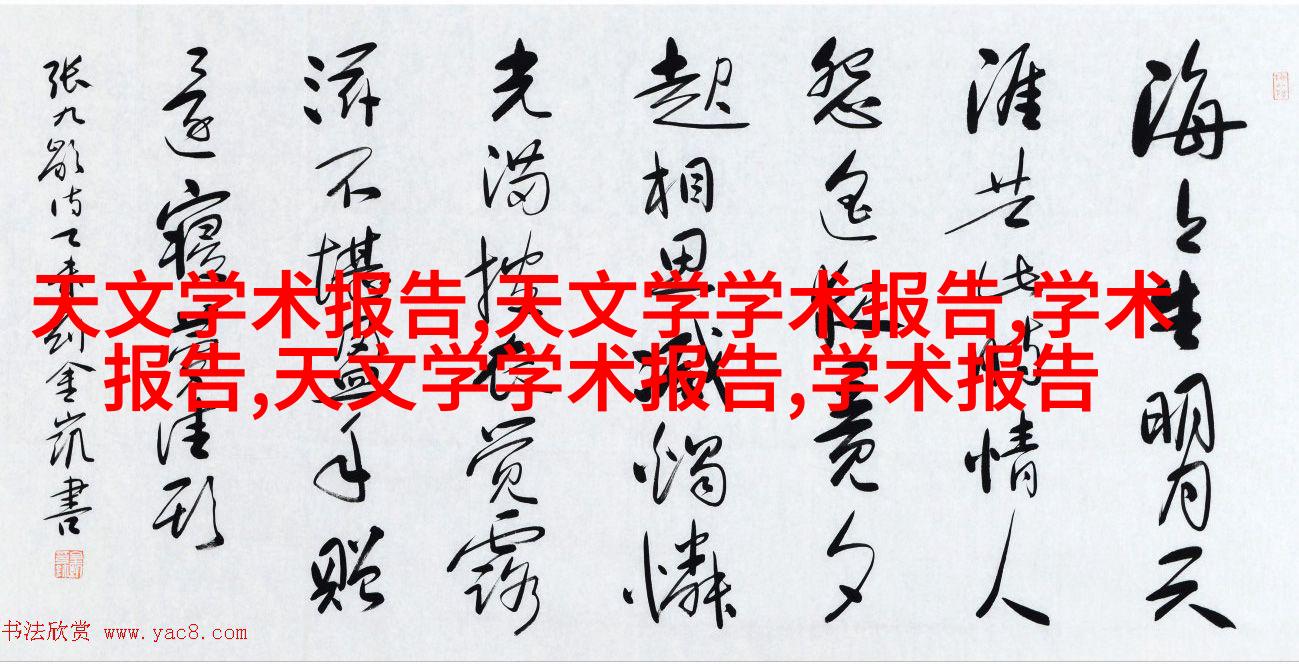 海上生明月天
涯共此時情人
怨遥夜竟夕
起相思滅烛憐
光满披衣觉露
滋不堪盈手赠
还寝夢佳期
张九龄诗乙未刘金凯書
天文学术报告,天文学学术报告,学术
报告,天文学学术报告,学术报告
书法欣赏 www.yac8.com